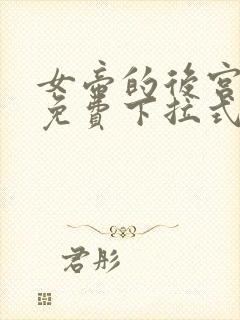 女帝的後宮
免費下拉式
君彤